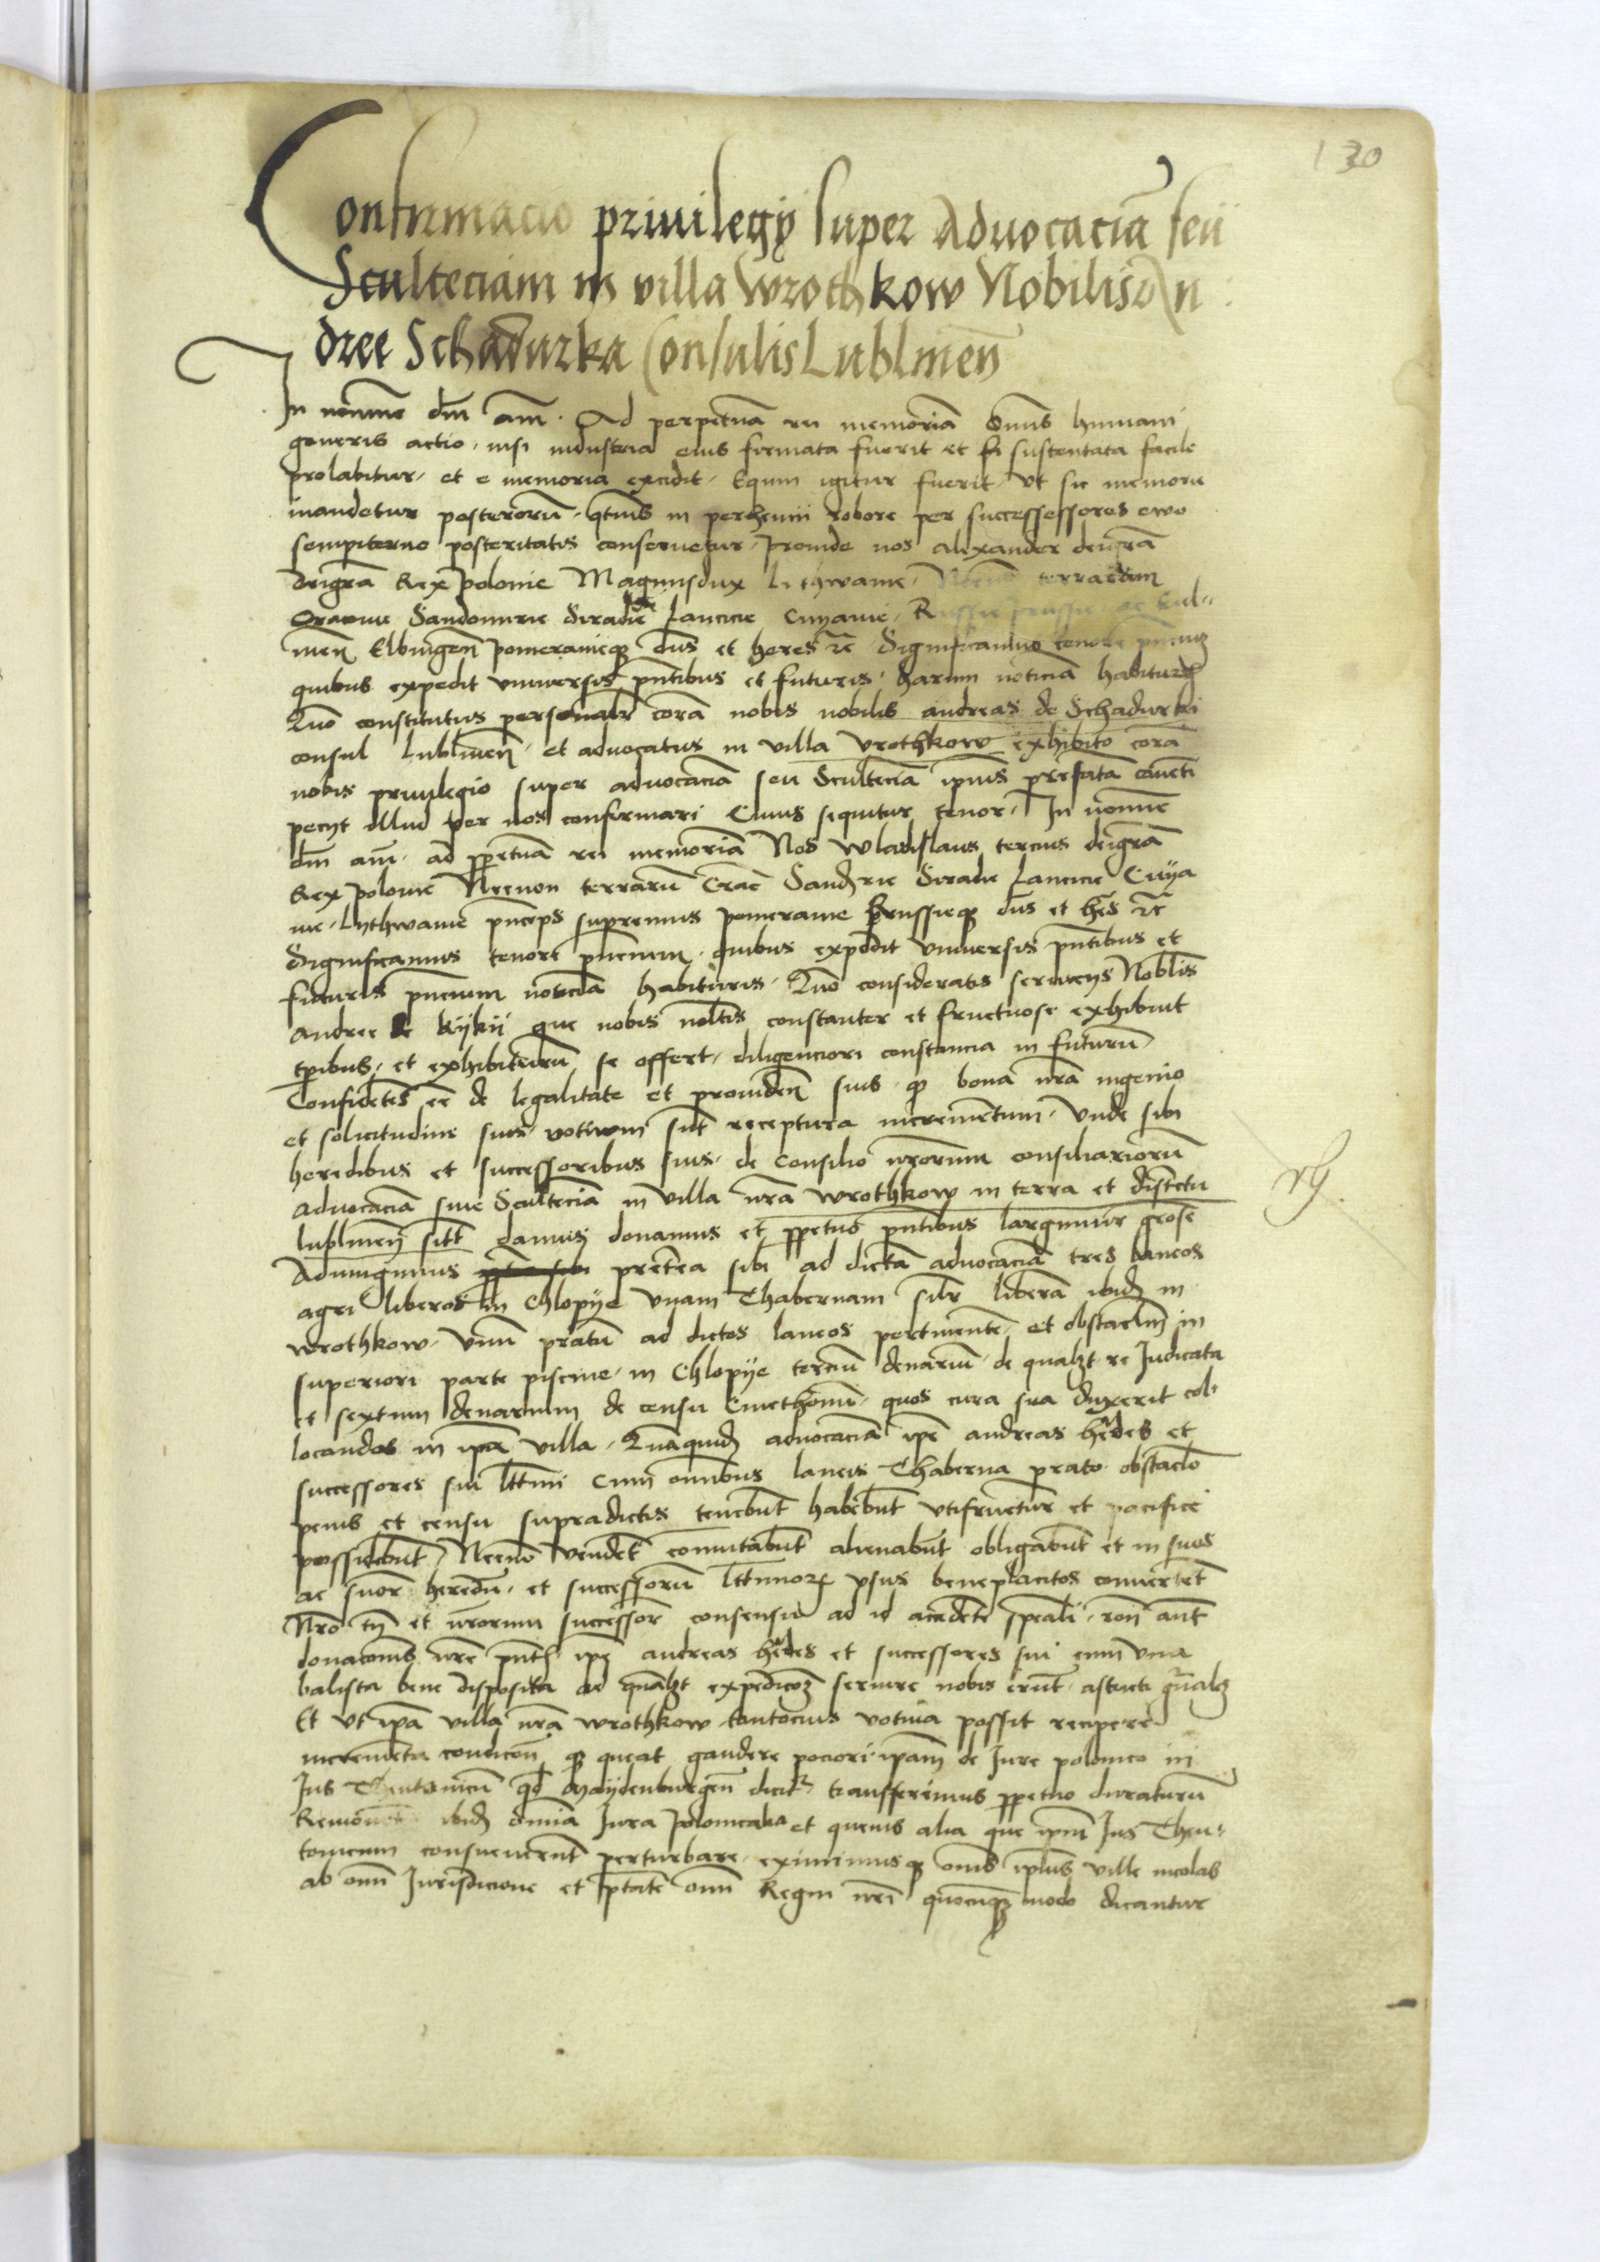 130
Confirmacio privilegy super Advocaciā seu
Sculteciam in villa Wrothkow Nobilis An
dree Schadurka Consulis Lublineñ
In nomine dni am̄. Ad perpetuā rei memoriā Omīs humani
generis actio, nisi industria eius firmata fuerit et sustentata facile
prolabitur, et e memoria excidit. Equm igitur fuerit, Ut sic memorie
mandetur posterorū, in perhenni robore per successessores ewo
sempiterno posteritatis conservetur, Proinde nos Alexander deigrā
deigrā Rex Polonie Magnusdux Lithwanie, Necnō terrarum
Cracovie Sandomirie Siradie Lancicie Cuyavie, Russie prussie ac Cul-
meñ Elbingeñ Pomeranieqꝫ dns et heres zc̄ Significamus tenore pñciuꝫ
quibus expedit universis pñtibus et futuris, harum noticiā habituꝝ
Quō constitutus personalr corā nobis nobilis andreas de Schadurki
consul Lublineñ, et advocatus in villa Vrothkow exhibito corā
nobis privilegio super advocaciā seu Scultecia ipius prefatā
petyt illud per nos confirmari Cuius sequitur tenor, In nomine
dni am̄. ad ppetuā rei memoriā Nos Wladislaus tercius deigrā
Rex Polonie Necnon terrarū Crac̄ Sandꝫrie Siradie Lancicie Cuya
vie, Lythwanie pñceps supremus Pomeranie Prussieqꝫ dns et hēs zc̄
Significamus tenore pñcium, quibus expedit Universis pñtibus et
futuris pñcium noticiā habituris, Quō consideratis serviciis Nobilis
Andree de Kykij que nobis constanter et fructuose exhibuit
tꝑibus, et exhibiturū se offert, diligenciori constancia in futurū
Confidētes eē de legalitate et providenc̄ suis, qꝫ bona nrā ingenio
et solicitudine suis votivum sūt receptura incrementum, Unde sibi
heredibus et successoribus suis, de Consilio nrōrum consiliariorū
advocaciā sive Scultecia in villa nrā Wrothkow in terra et distcētu
lublineñ sitt̄ damus donamus et ppetuo pñtibus largimur
Adiungimus pretēea sibi ad dictā advocaciā tres laneos
agri liberos in Chlopye Unam Thabernam silr liberā ibidꝫ in
Wrothkow, Unū pratū ad dictos laneos pertinente, et obstaclm̄ in
superiori parte piscine, in Chlopye terciū denariū, de qualꝫt re Iudicata
et sextum denarium de censu Cmethonū, quos cura sua duxerit col-
locandos in ipā villa, Quāquidꝫ advocaciā ipē andreas hēdes et
successores sui lttīmi cum omībus laneis Thaberna prato obstaclo
penis et censu supradictis tenebūt habēbūt utifruētur et pacifice
possidebūt, Necnō vendēt comutabūt alienabūt obligabūt et in suos
ac suorꝫ heredū, et successorū lttīmoꝝ usus beneplacitos convertēt
Nrō tñ et nrōrum successorꝫ consensu ad id accedēte spēali, rōn aūt
donacōnis nrē pñtis ipē andreas hēdes et successores sui cum una
balista bene disposita ad quālꝫt expedicōꝫ servire nobis erūt, astricti
Et ut ipā villa nrā Wrothkow tantocius votiva possit recipere
incremēta condicōn qꝫ queat gaudere pociori, ipam de Iure polonico in
Ius Theutonicū qđ Maydenburgeñ dicit transferimus ppetuo duraturū
Removen̄ ibidꝫ omnia Iura Polonicalia et quevis alia que ipm̄ Ius Theu-
tonicum consueverunt perturbare, eximimusqꝫ om̄s ipīus ville incolas
ab omi Iurisdicione et ptāte omi Regni nrī quocūqꝫ modo dicantur